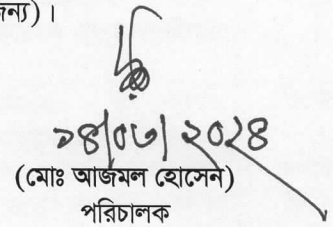 জন্য)।
১৪/০৩/২০২৪
(মোঃ আজমল হোসেন)
পরিচালক